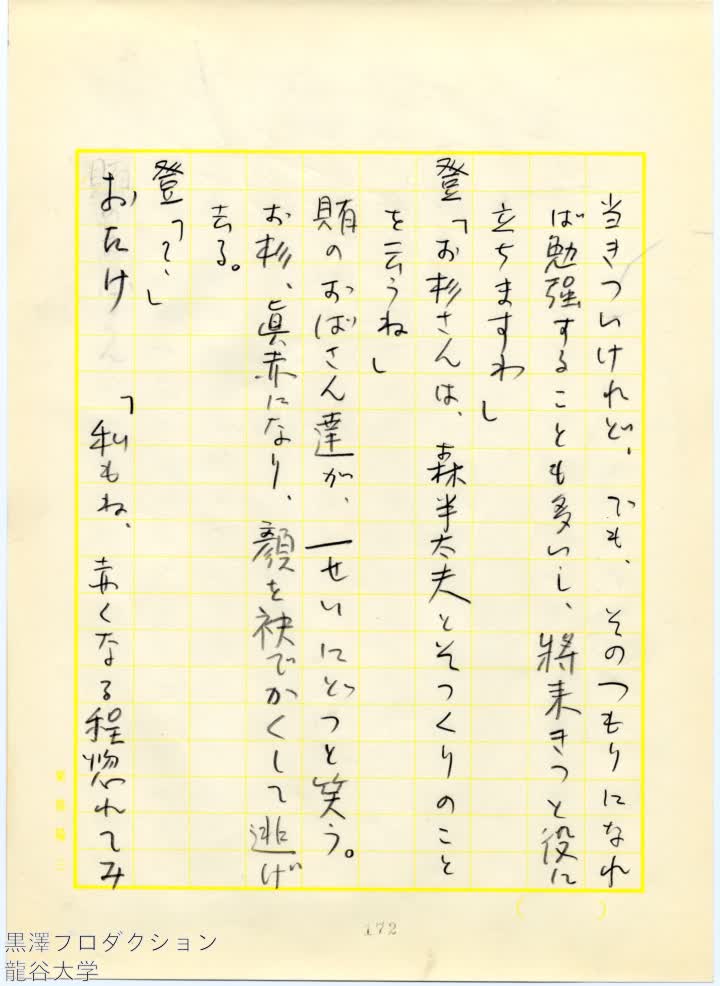 当きついけれど、でも、そのつもりになれ
ば勉強することも多いし、將来きっと役に
立ちますわ」
登「お杉さんは、森半太夫とそっくりのこと
を云うね」
賄のおばさん達が、一せいにどっと笑う。
お杉、眞赤になり、顔を袂でかくして逃げ
去る。
登「？」
おたけ「私もね、赤くなる程惚れてみ
172
黒澤プロダクション
龍谷大学